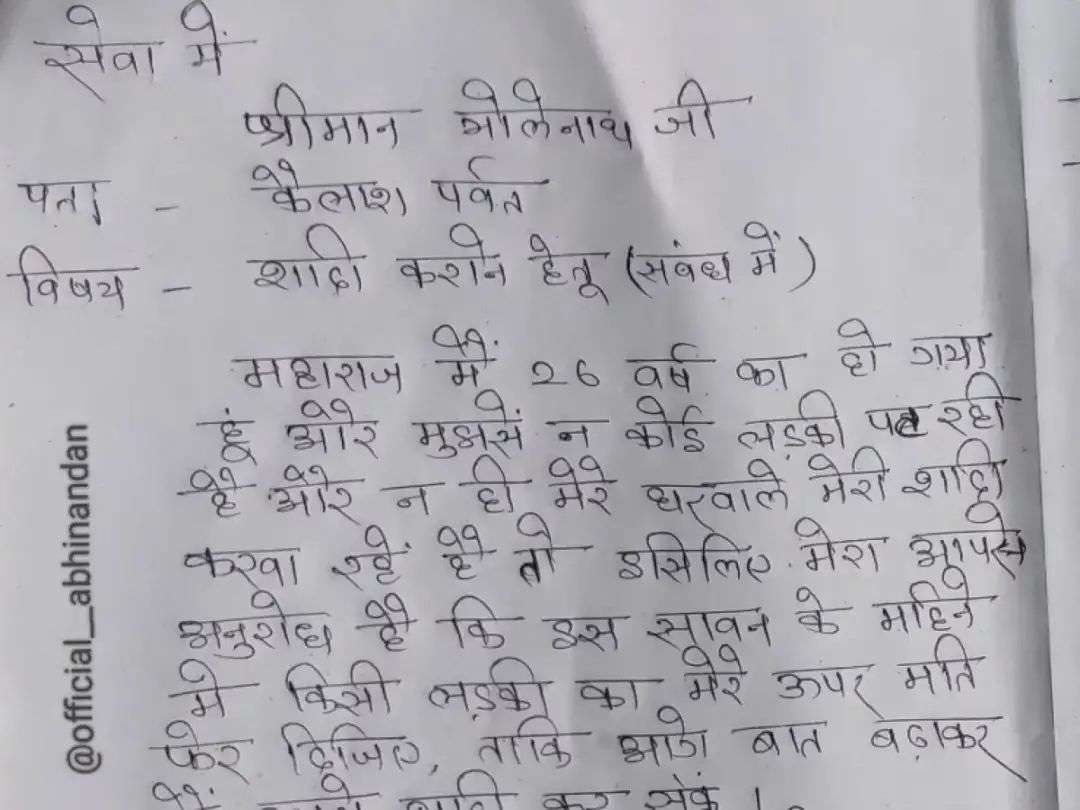 सेवा में
श्रीमान भोलेनाथ जी
पता - कैलाश पर्वत
विषय - शादि करोने हेतू (संबंध में)
महाराज मैं 26 वर्ष का हो गया
हूं और मुझसें न कोई लड़की पट रही
है और न ही मेरे घरवाले मेरी शादि
करवा रहें है तो इसिलिए मेरा आपसे
अनुरोध है कि इस सावन के महिने
में किसी लड़की का मेरे ऊपर मति
फेर दिजिए, ताकि आगे बात बढ़ाकर
कर सकूं ।
@official__abhinandan